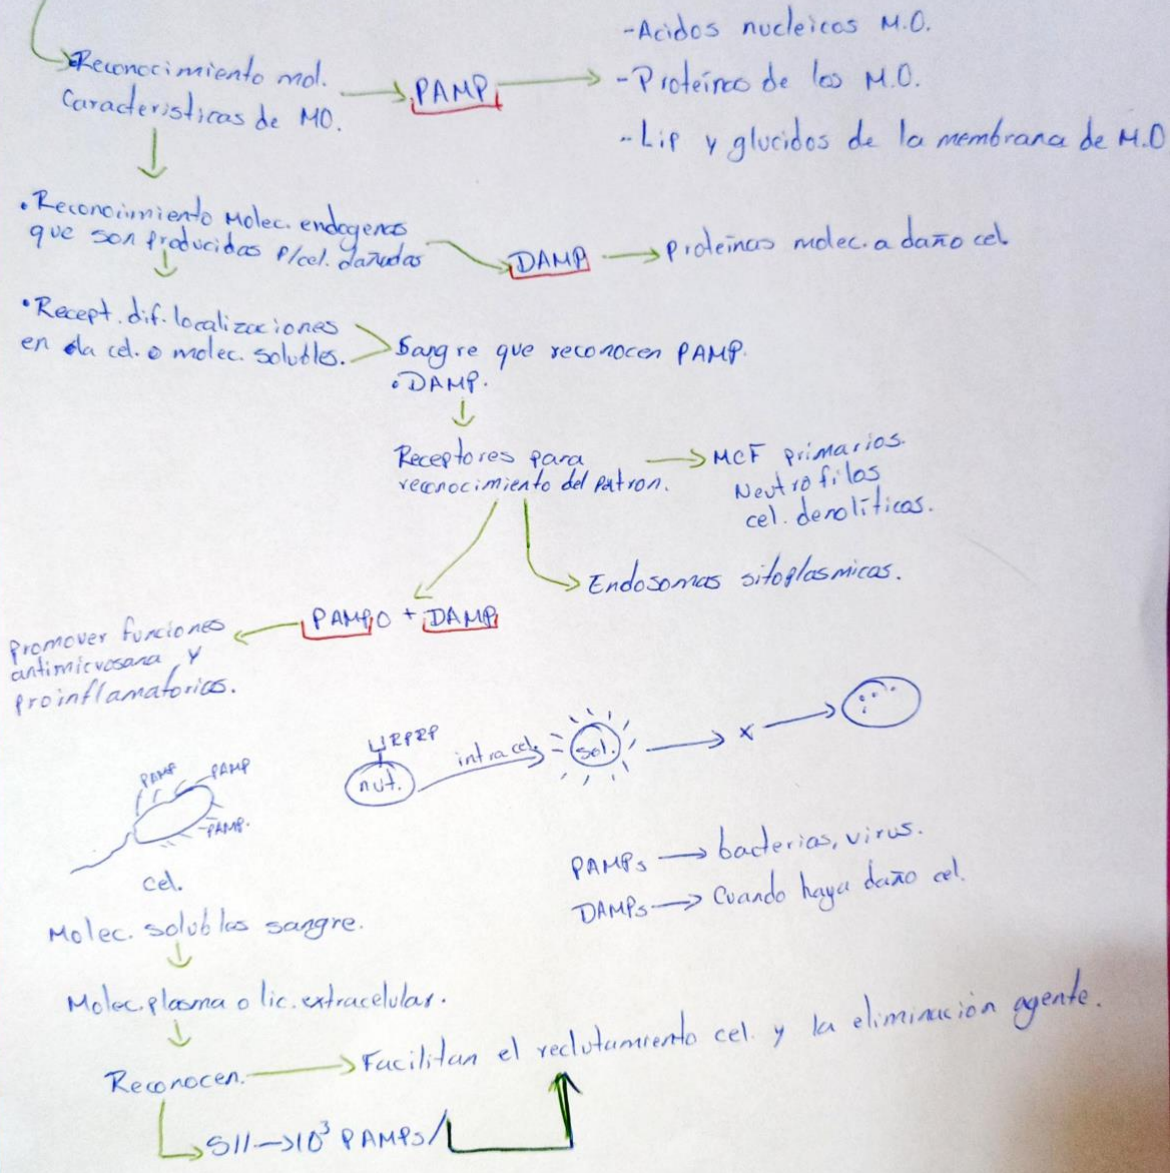 -Acidos nucleicos M.O.
•Reconocimiento mol.
Caracteristicas de MO.
PAMP
-Proteínas de los M.O.
-Lip y glucidos de la membrana de M.O
•Reconoimiento Molec. endogenas
que son producidas P/cel. dañadas
DAMP
Proteínas molec. a daño cel.
•Recept. dif. localizaciones
en da cel. o molec. solubles.
Sangre que reconocen PAMP.
•DAMP.
Receptores para
reconocimiento del patron.
MCF primarios.
Neutrofilos
cel. denolíticas.
Endosomas sitoplasmicas.
PAMP o + DAMP
Promover funciones
antimicrosana y
proinflamatorios.
PAMP
PAMP
PAMP.
cel.
RPRP
nut.
intracel.
sol.
x
PAMPs → bacterias, virus.
DAMPs → Cuando haya daño cel.
Molec. solublas sangre.
Molec. plasma o lic. extracelular.
Reconocen. → Facilitan el reclutamiento cel. y la eliminación agente.
SII → 10³ PAMPs/